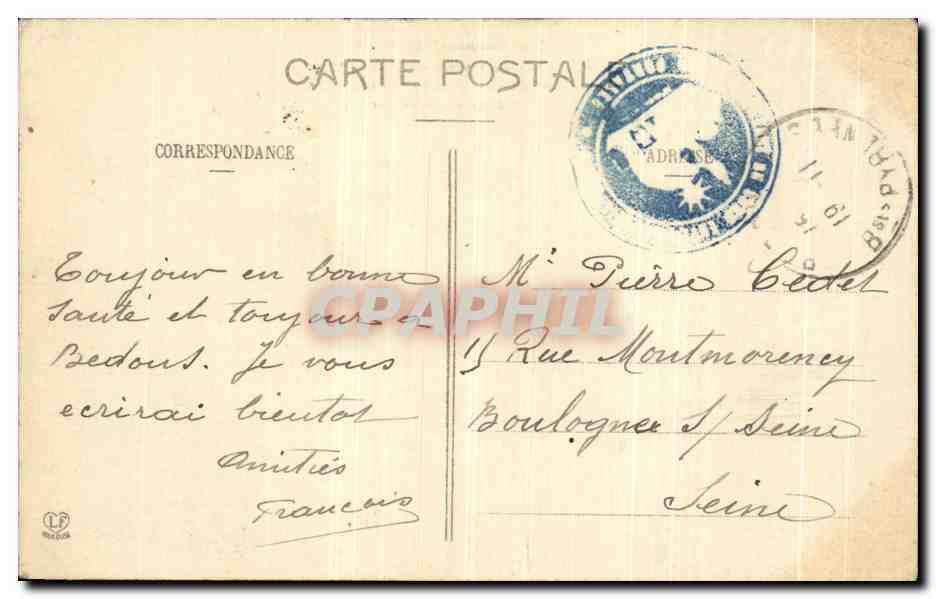 CARTE POSTALE
CORRESPONDANCE
ADRESSE
Toujour en bonne
santé et toujour a
Bedous. Je vous
ecrirai bientot
Amitiés
François
Mr Pierre Cedel
15 Rue Montmorency
Boulogne S/ Seine
Seine
CPAPHIL
LF
TOULOUSE